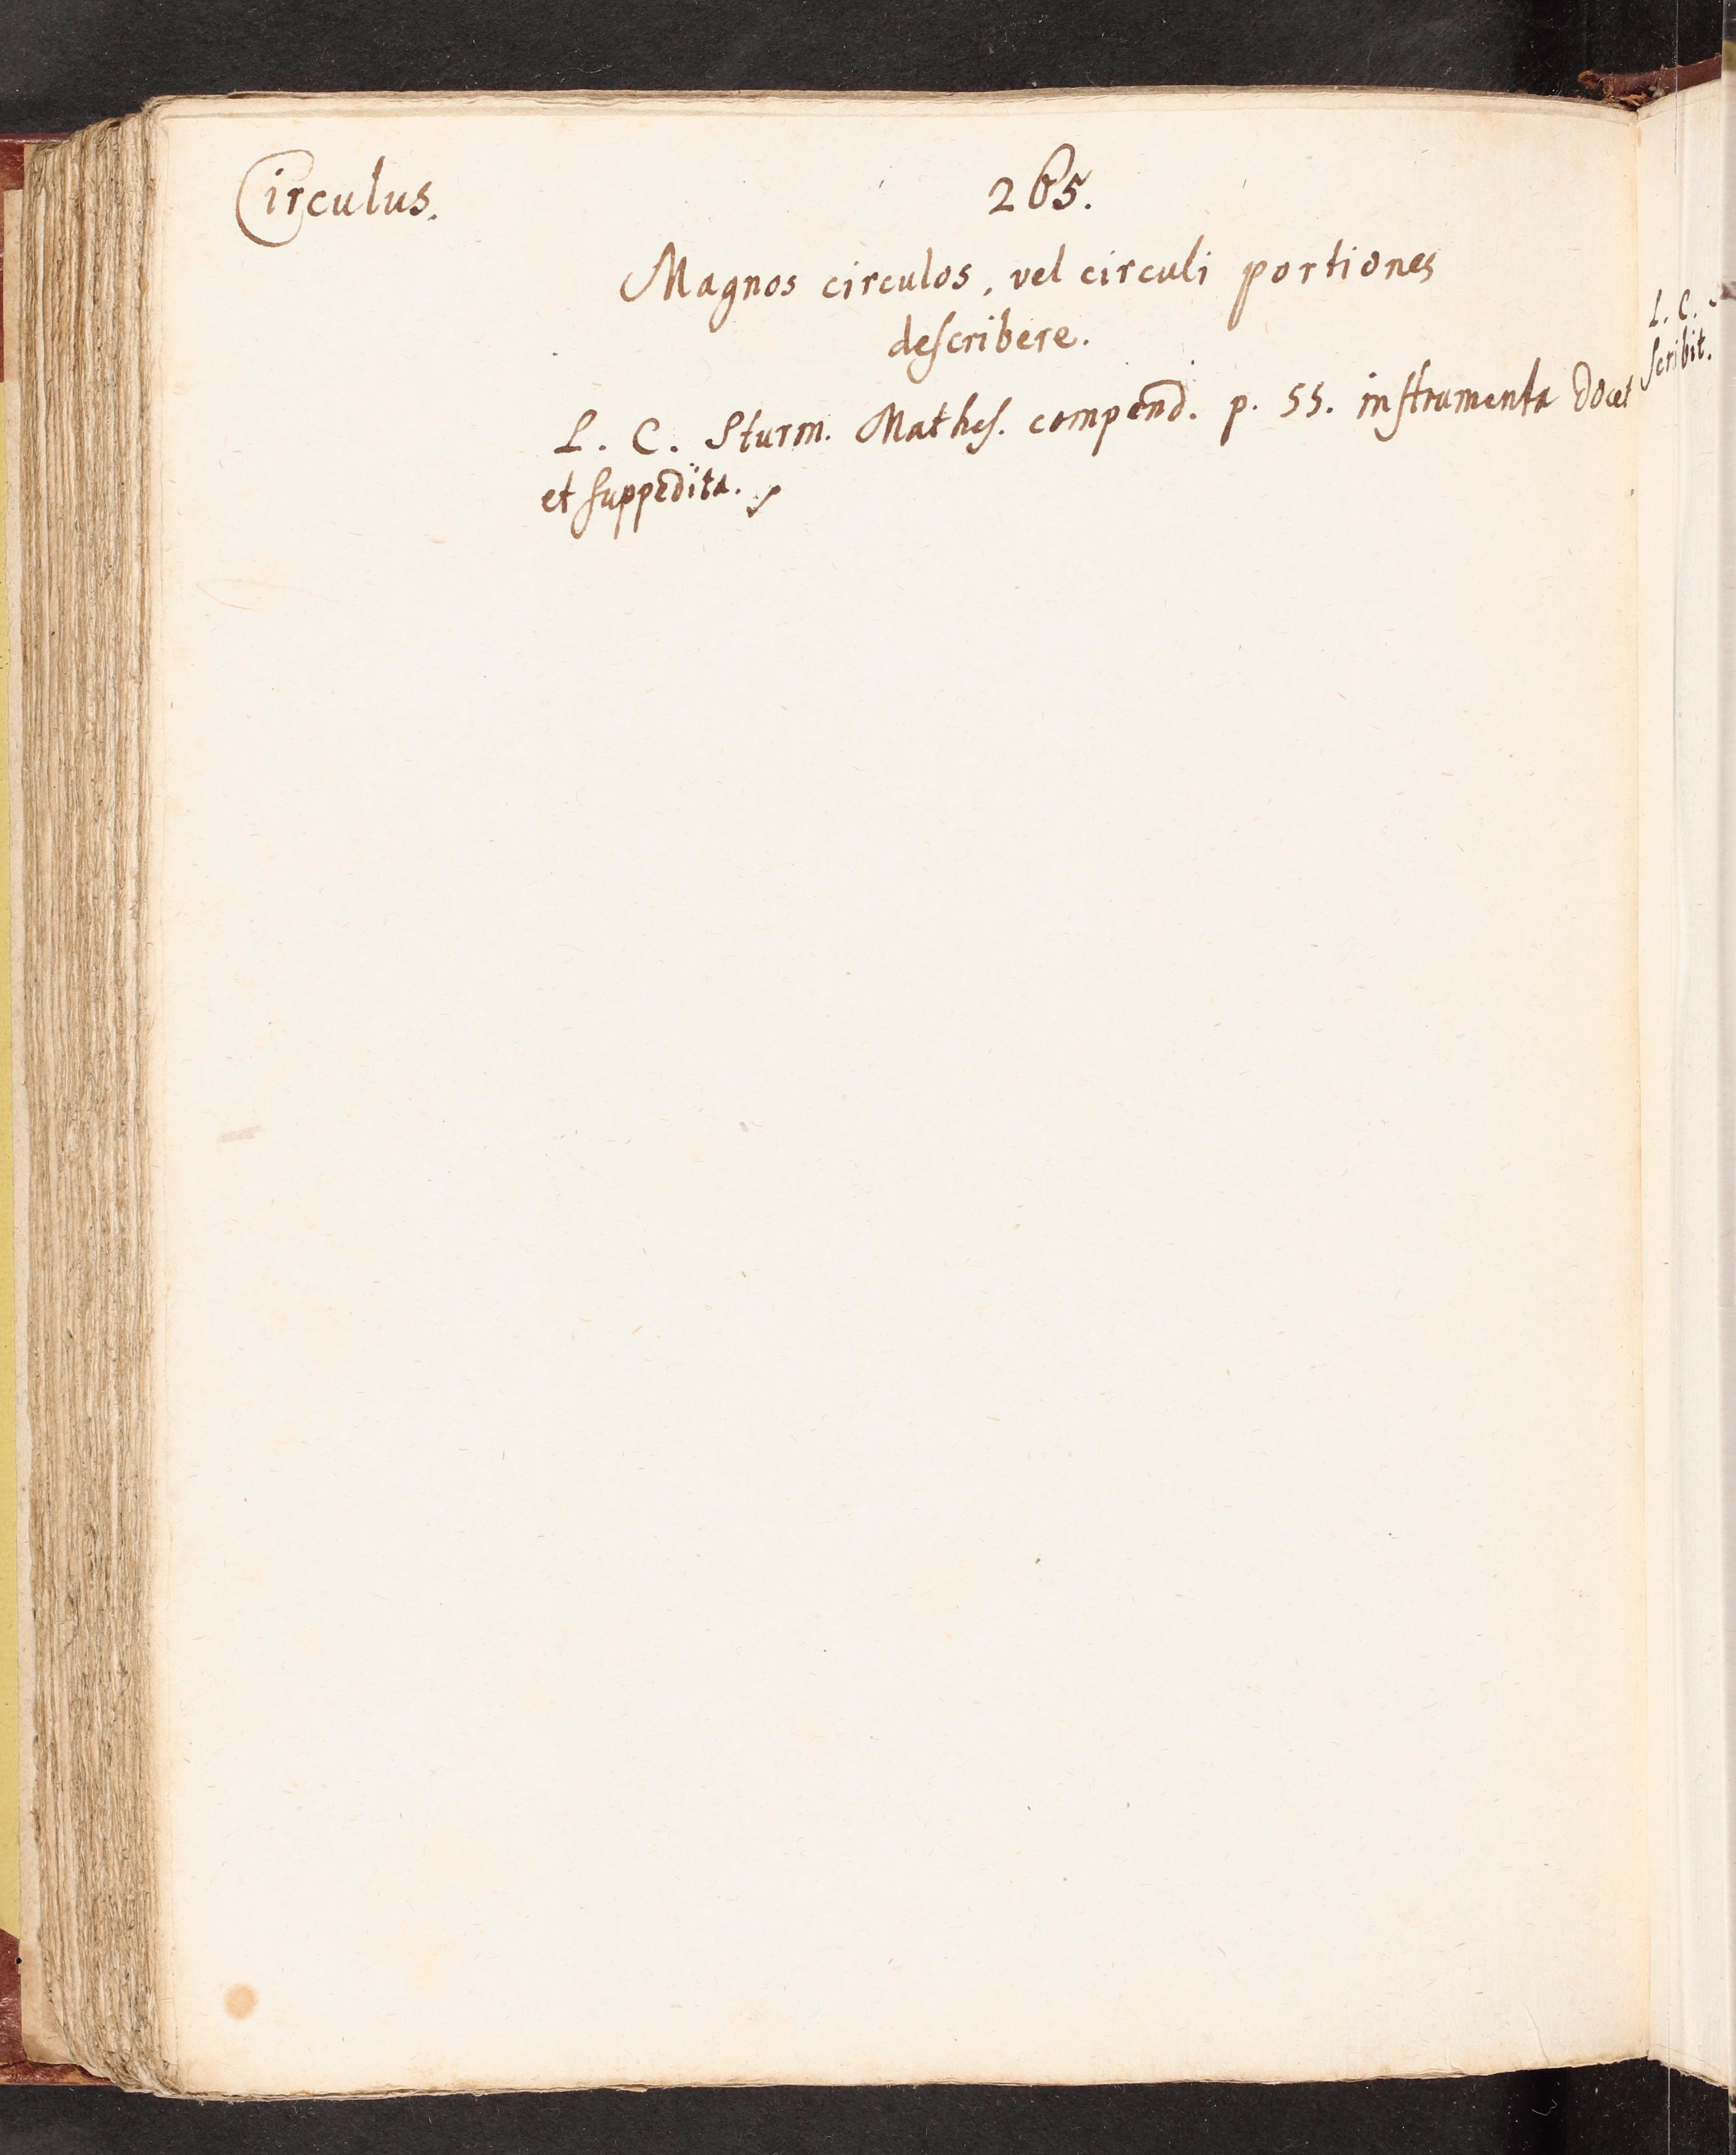 Circulus.
265.
Magnos circulos, vel circuli portiones
deſcribere.
L. C. Sturm. Matheſ. compend. p. 55. inſtrumenta docet
et ſuppedita.
L. C.
ſcribit.